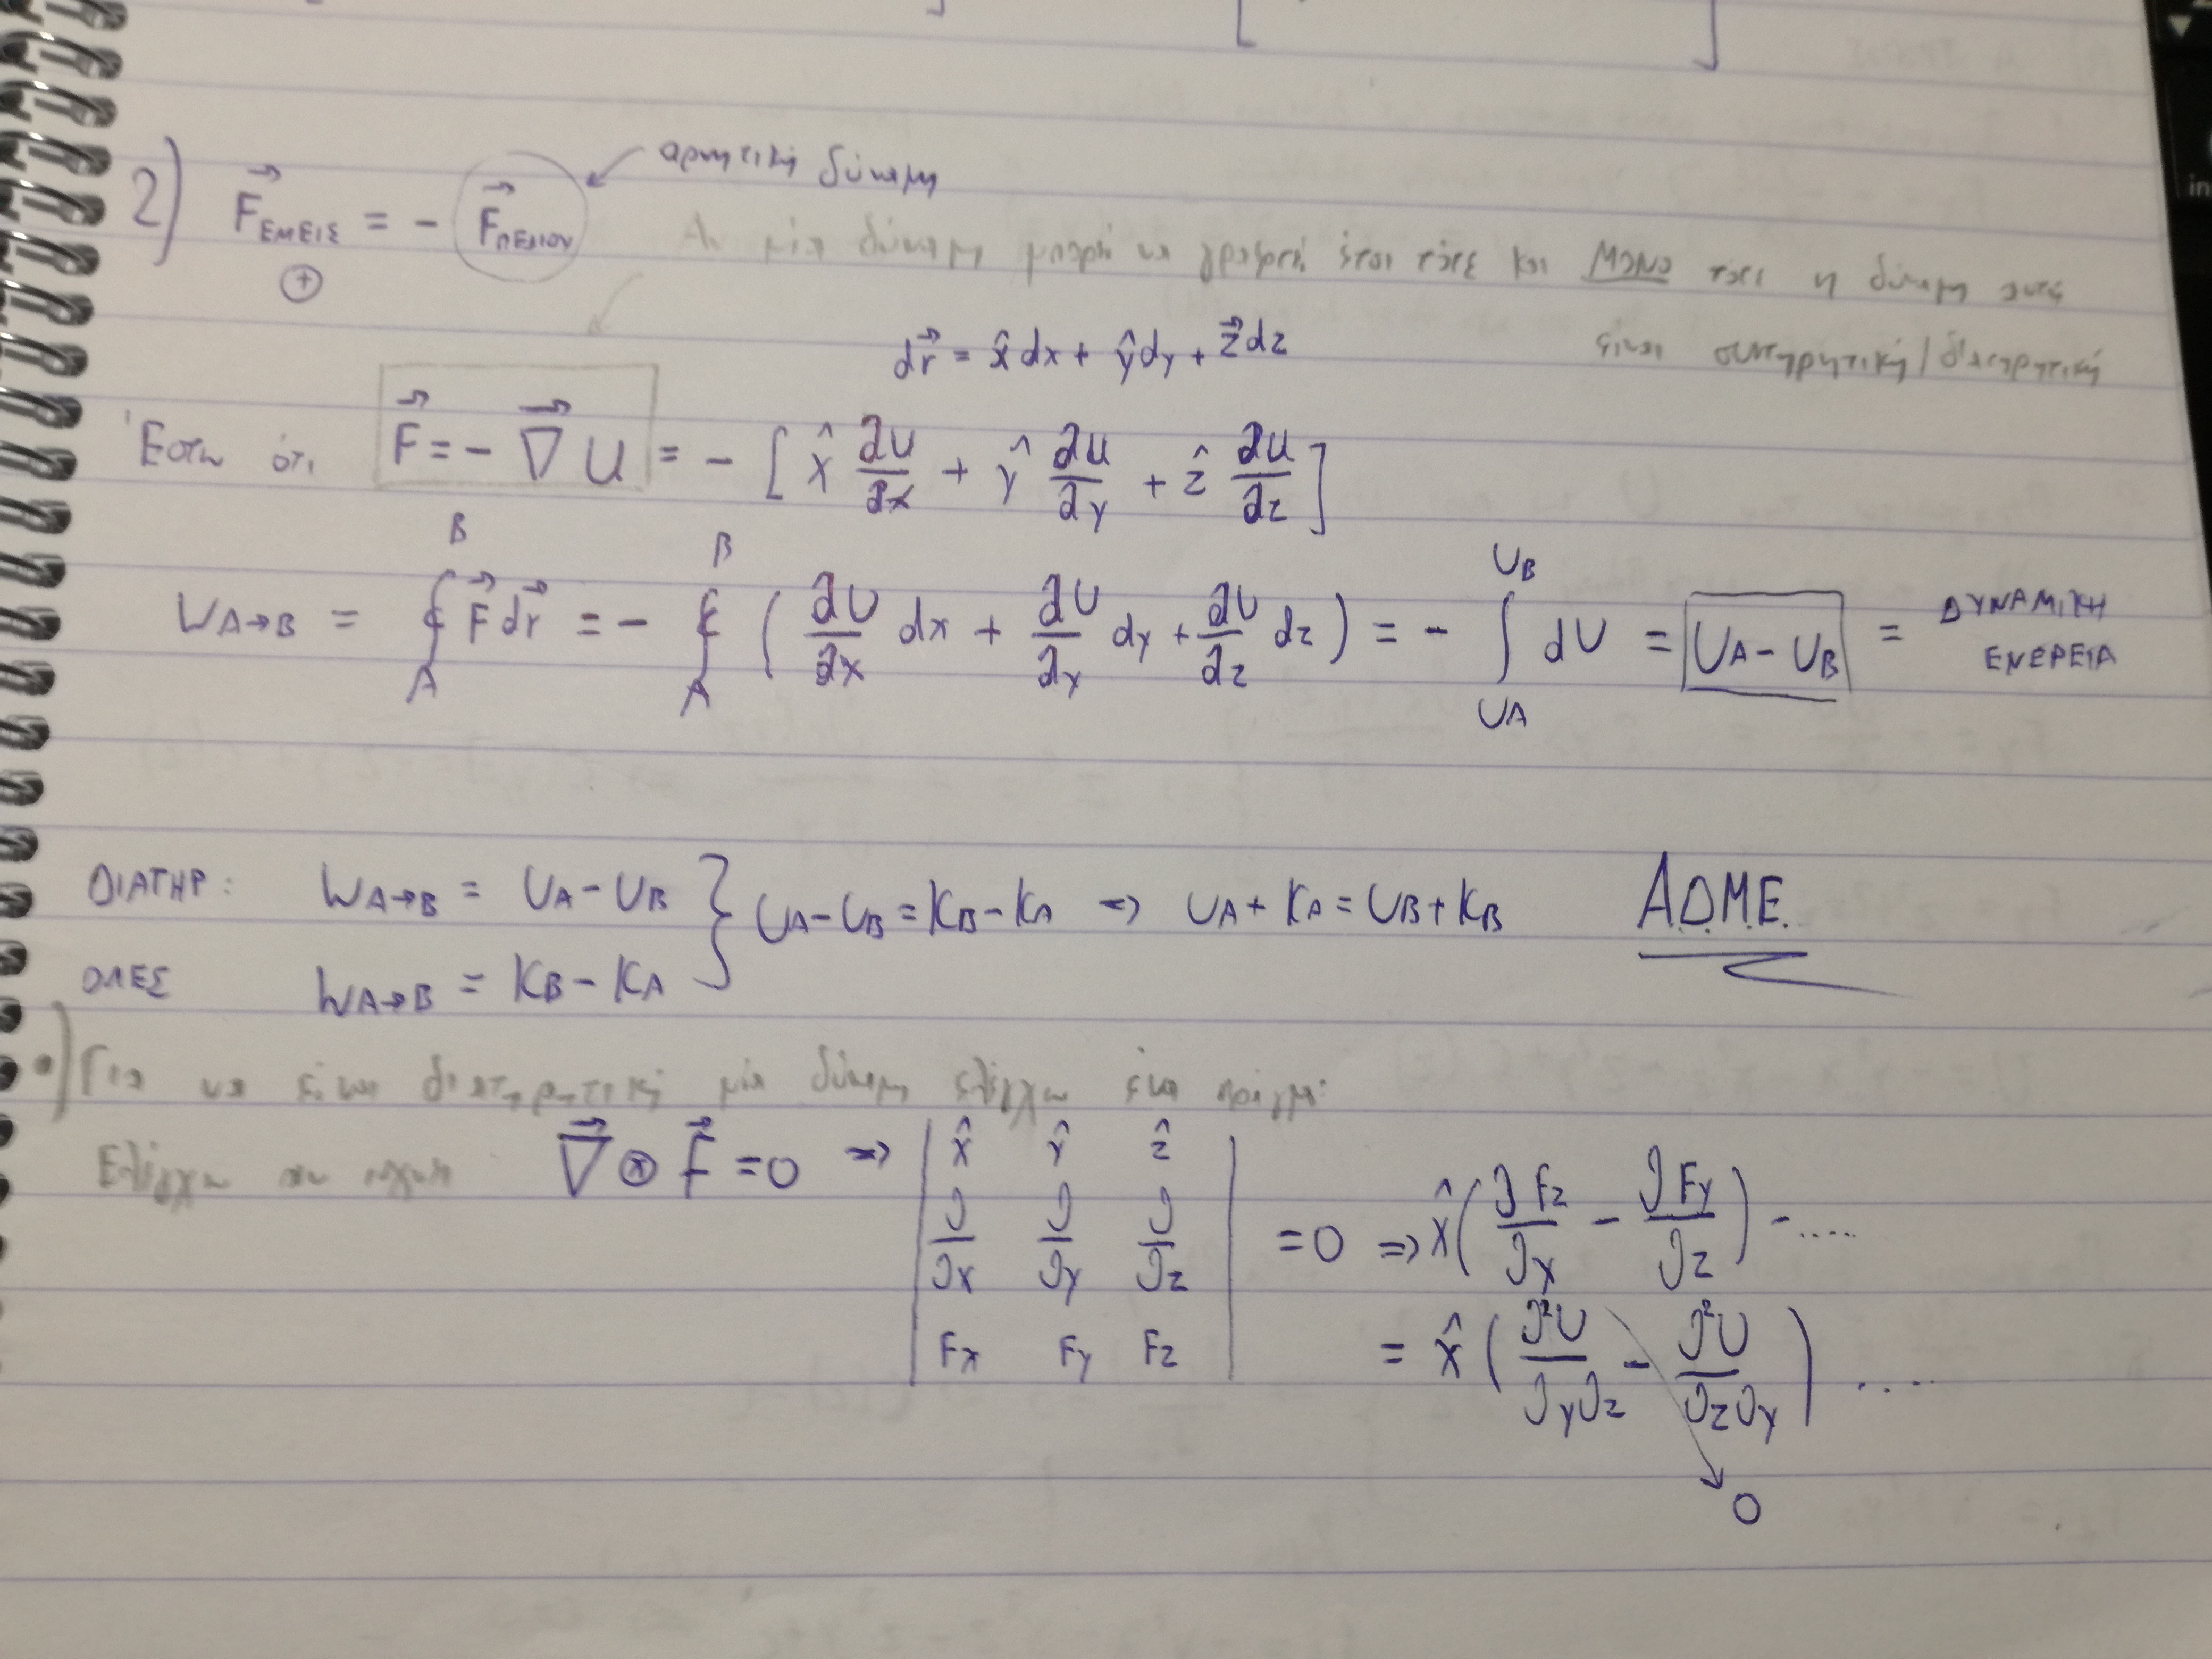 2) F⃗ΕΜΕΙΣ = - F⃗ΠΕΔΙΟΥ αρνητική δύναμη
⊕
Αν μία δύναμη μπορεί να γραφτεί έτσι τότε και ΜΟΝΟ τότε η δύναμη αυτή
είναι συντηρητική/διατηρητική
dr⃗ = x̂dx + ŷdy + z⃗dz
Έστω ότι F⃗ = - ∇⃗ U = - [ x̂ ∂U/∂x + ŷ ∂U/∂y + ẑ ∂U/∂z ]
WA→B = ∮_A^B F⃗ dr⃗ = - ∮_A^B ( ∂U/∂x dx + ∂U/∂y dy + ∂U/∂z dz ) = - ∫_UA^UB dU = UA - UB = ΔΥΝΑΜΙΚΗ ΕΝΕΡΕΙΑ
ΔΙΑΤΗΡ: WA→B = UA - UB } UA - UB = KB - KA ⇒ UA + KA = UB + KB Α.Δ.Μ.Ε.
ΟΛΕΣ WA→B = KB - KA
•) Για να είναι διατηρητική μία δύναμη ελέγχω ένα πράγμα:
Ελέγχω αν ισχύει ∇⃗ ⊗ F⃗ = 0 ⇒ | x̂ ŷ ẑ |
| ∂/∂x ∂/∂y ∂/∂z | = 0 ⇒ x̂ ( ∂Fz/∂y - ∂Fy/∂z ) - ....
| Fx Fy Fz | = x̂ ( ∂²U/∂y∂z - ∂²U/∂z∂y ) ....
0